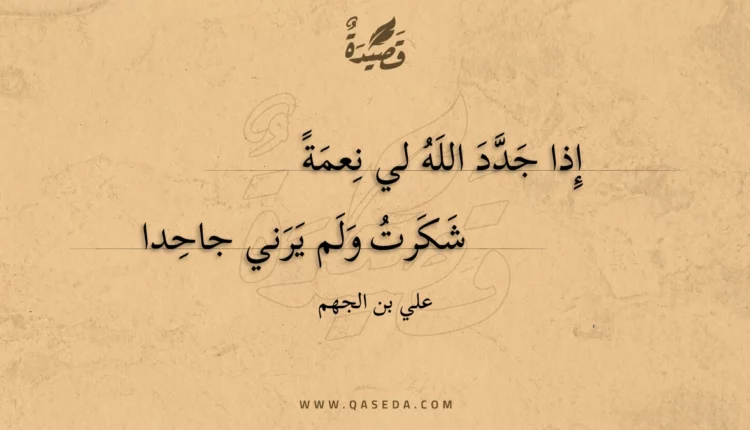 قَصِيدَةٌ
إِذا جَدَّدَ اللَهُ لي نِعمَةً
شَكَرتُ وَلَم يَرَني جاحِدا
علي بن الجهم
WWW.QASEDA.COM